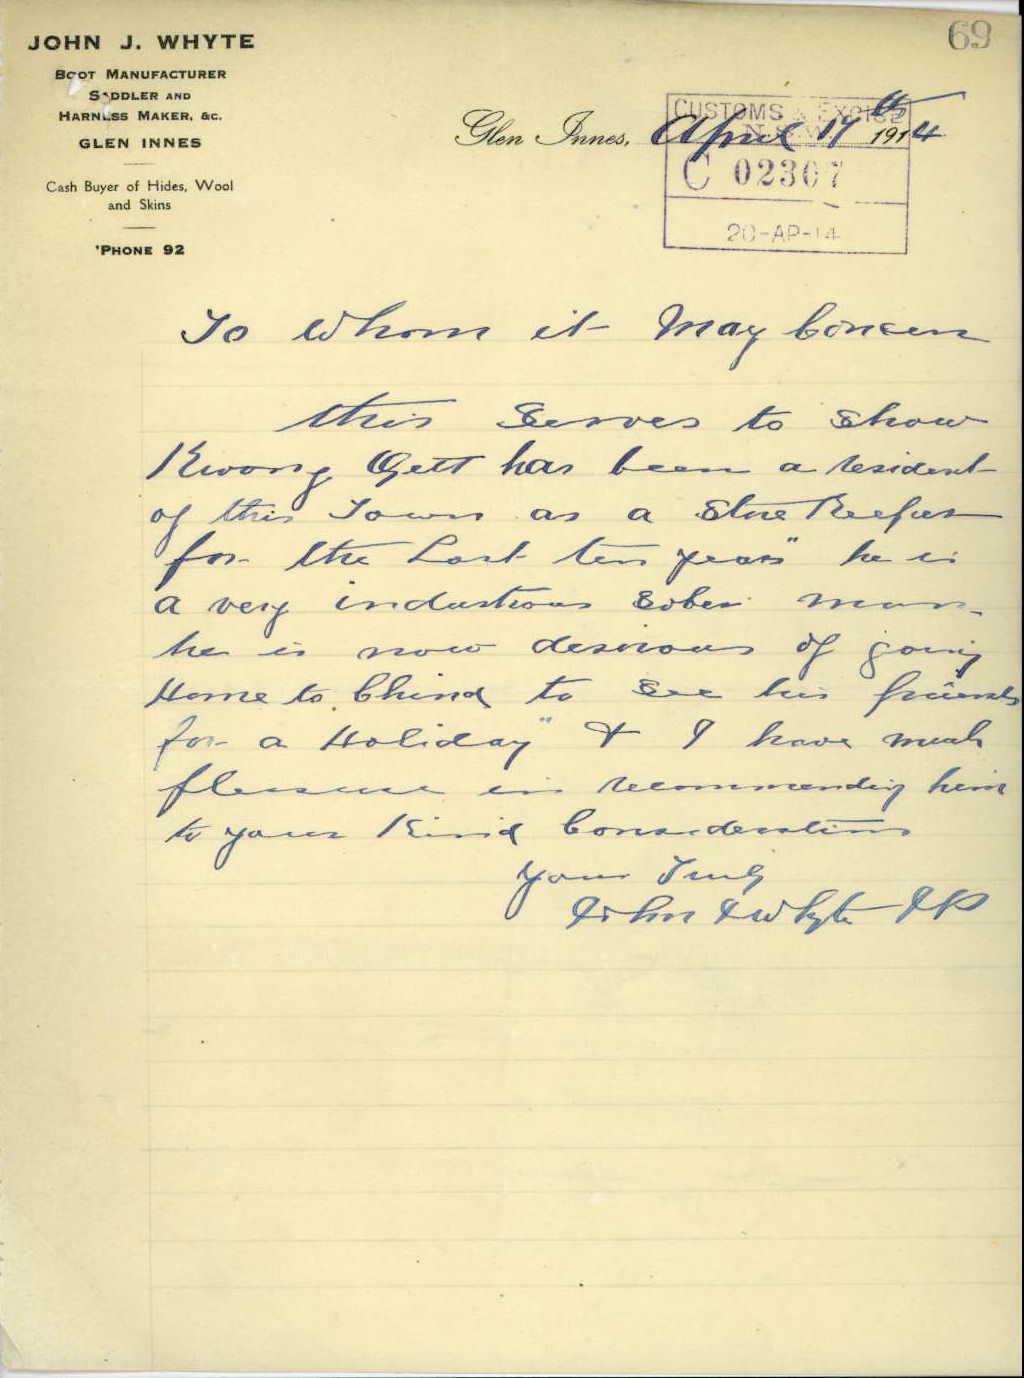 69
JOHN J. WHYTE
BOOT MANUFACTURER
SADDLER AND
HARNESS MAKER, &C.
GLEN INNES
Cash Buyer of Hides, Wool
and Skins
'PHONE 92
Glen Innes, April 17th 1914
CUSTOMS & EXCISE
N.S.W.
C 02307
20-AP-14
To Whom it May Concern
this Serves to Show
Kwong Gett has been a resident
of this Town as a Store Keeper
for the Last ten years" he is
a very industrious Sober man
he is now desirous of going
Home to China to See his friends
for a Holiday" & I have much
pleasure in recommending him
to your Kind Consideration
Yours Truly
John J Whyte JP